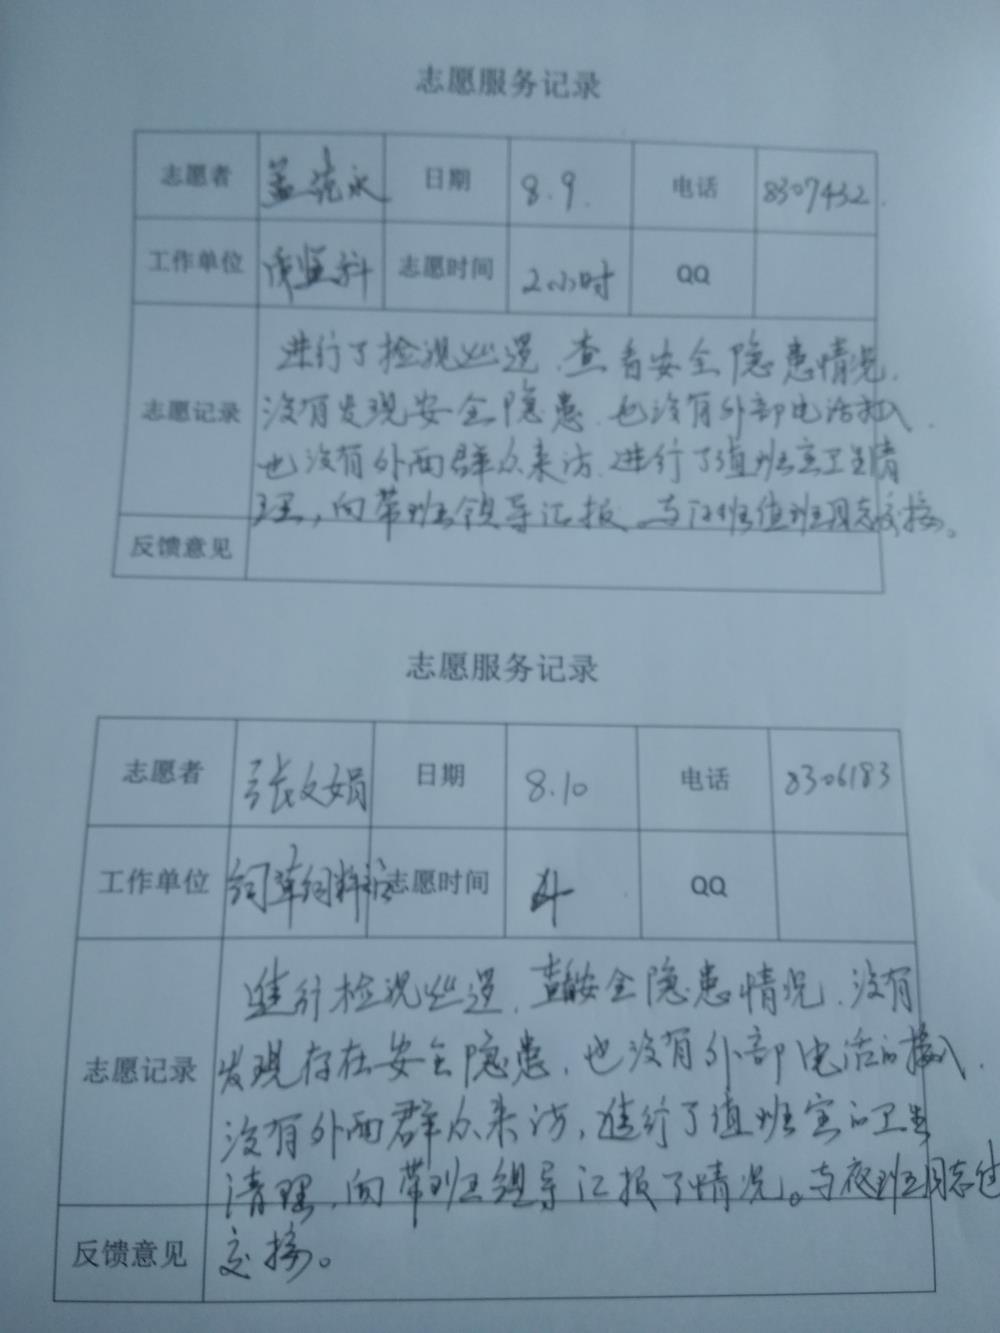 志愿服务记录
志愿者 日期 8.9. 电话 8307432.
工作单位 质监科 志愿时间 2小时 QQ
进行了检视巡逻.查看安全隐患情况.
志愿记录 没有发现安全隐患.也没有外部电话打入.
也没有外面群众来访.进行了值班室卫生清
理,向带班领导汇报.与值班同志交接。
反馈意见
志愿服务记录
志愿者 张文娟 日期 8.10 电话 8306183
工作单位 饲草饲料站 志愿时间 QQ
进行检视巡逻.查看安全隐患情况.没有
志愿记录 发现存在安全隐患,也没有外部电话的接入.
没有外面群众来访,进行了值班室的卫生
清理,向带班领导汇报了情况。与夜班同志进
反馈意见 交接。